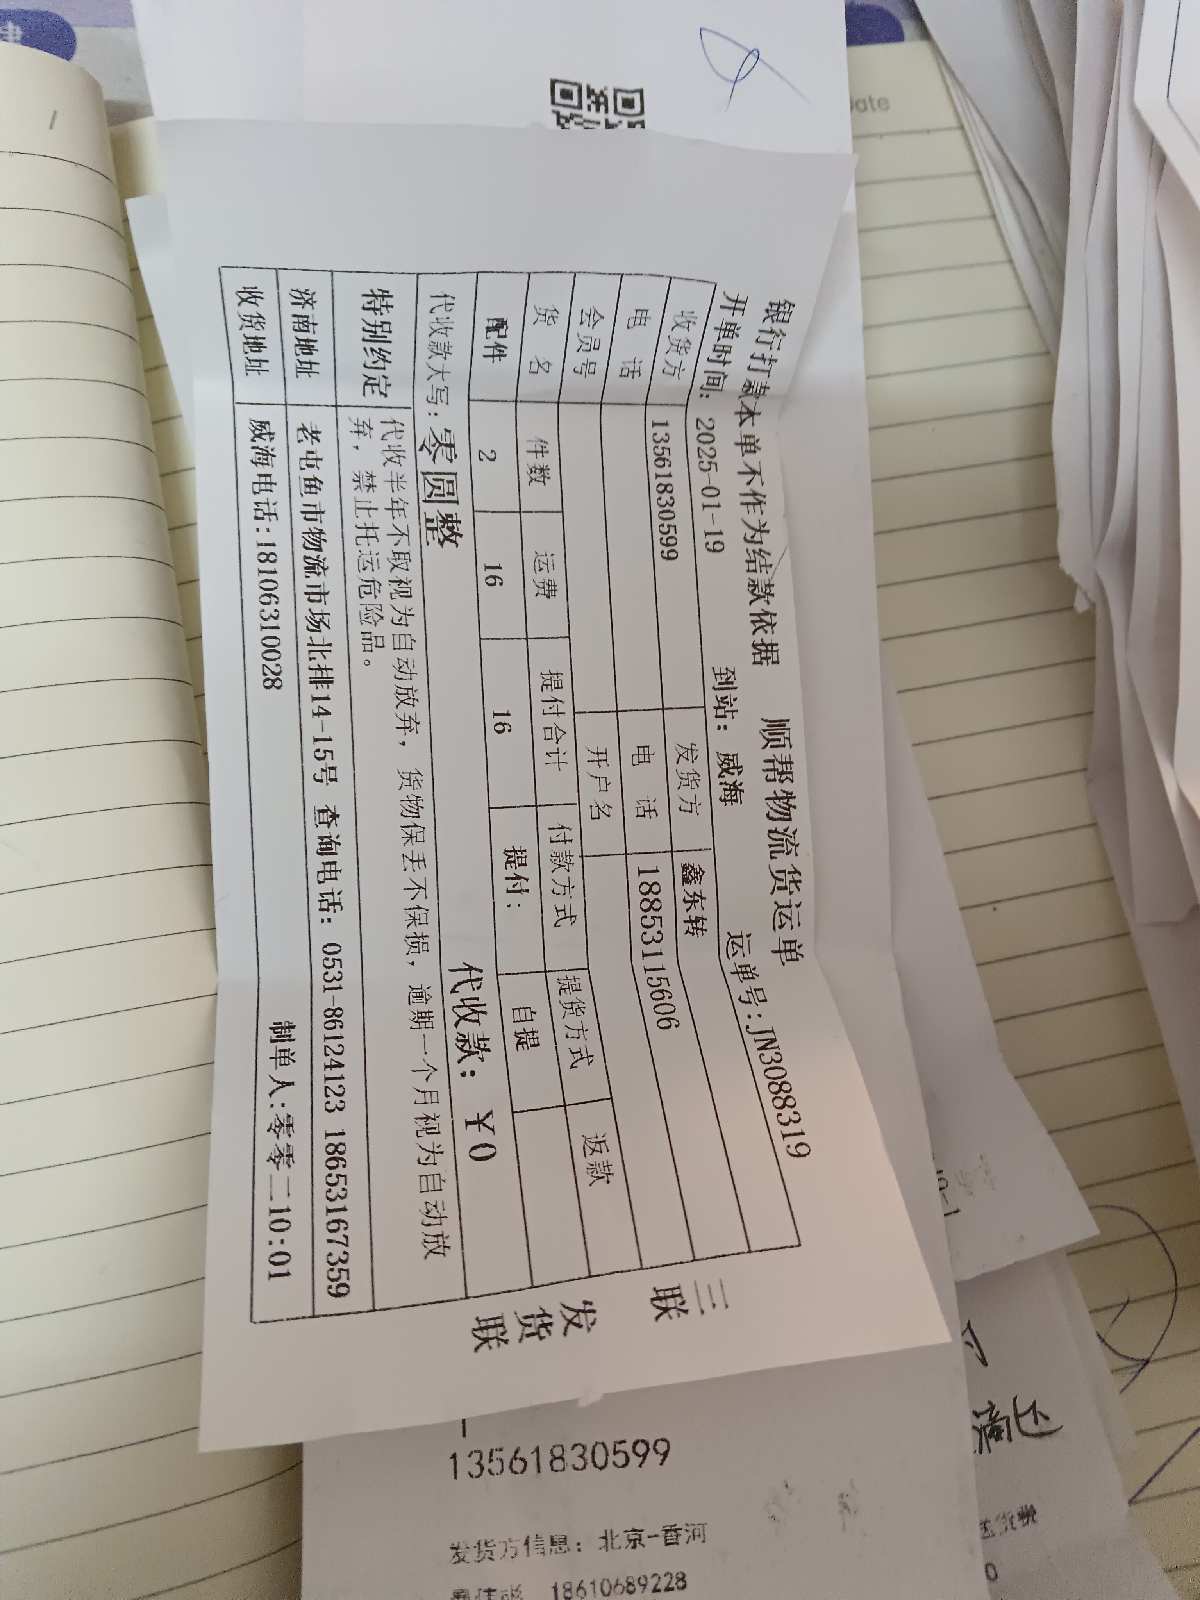 银行打款本单不作为结款依据 顺帮物流货运单
开单时间: 2025-01-19 到站: 威海 运单号:JN3088319
收货方 13561830599 发货方 鑫东转
电 话 电 话 18853115606
会员号 开户名
货 名 件数 运费 提付合计 付款方式 提货方式 返款
配件 2 16 16 提付: 自提
代收款大写: 零圆整 代收款: ￥0
特别约定 代收半年不取视为自动放弃, 货物保丢不保损, 逾期一个月视为自动放
弃, 禁止托运危险品。
济南地址 老屯鱼市物流市场北排14-15号 查询电话: 0531-86124123 18653167359
收货地址 威海电话:18106310028 制单人:零零二10:01
三联
发货联
13561830599
发货方信息: 北京-香河
18610689228
Date